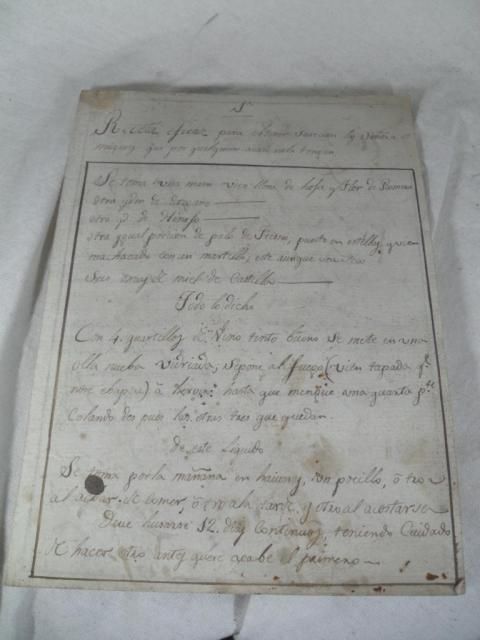 Receta eficaz para
que por qualquier
Se toma una mano vien llena de hoja y flor de Romero
otra ydm de
otra yd. de Hinojo
otra ygual porcion de palo de puesto en astillas, y vien
machacado con un martillo, este aunque sea
Seis onzas de miel de Castilla
Todo lo dicho
Con 4. quartillos de Vino tinto bueno se mete en una
olla nueba vidriada, se pone al fuego (vien tapada qe.
no se ebapore) à hervir hasta que mengue una quarta pte.
Colando despues las otras tres que quedan.
De este Liquido
Se toma por la mañana en haiunas, un pocillo, ô tro
al de Comer, ô tro a la tarde, y otro al acostarse
Deve hacerse 12. dias Continuos, teniendo Cuidado
de hacer otro antes que se acabe el primero